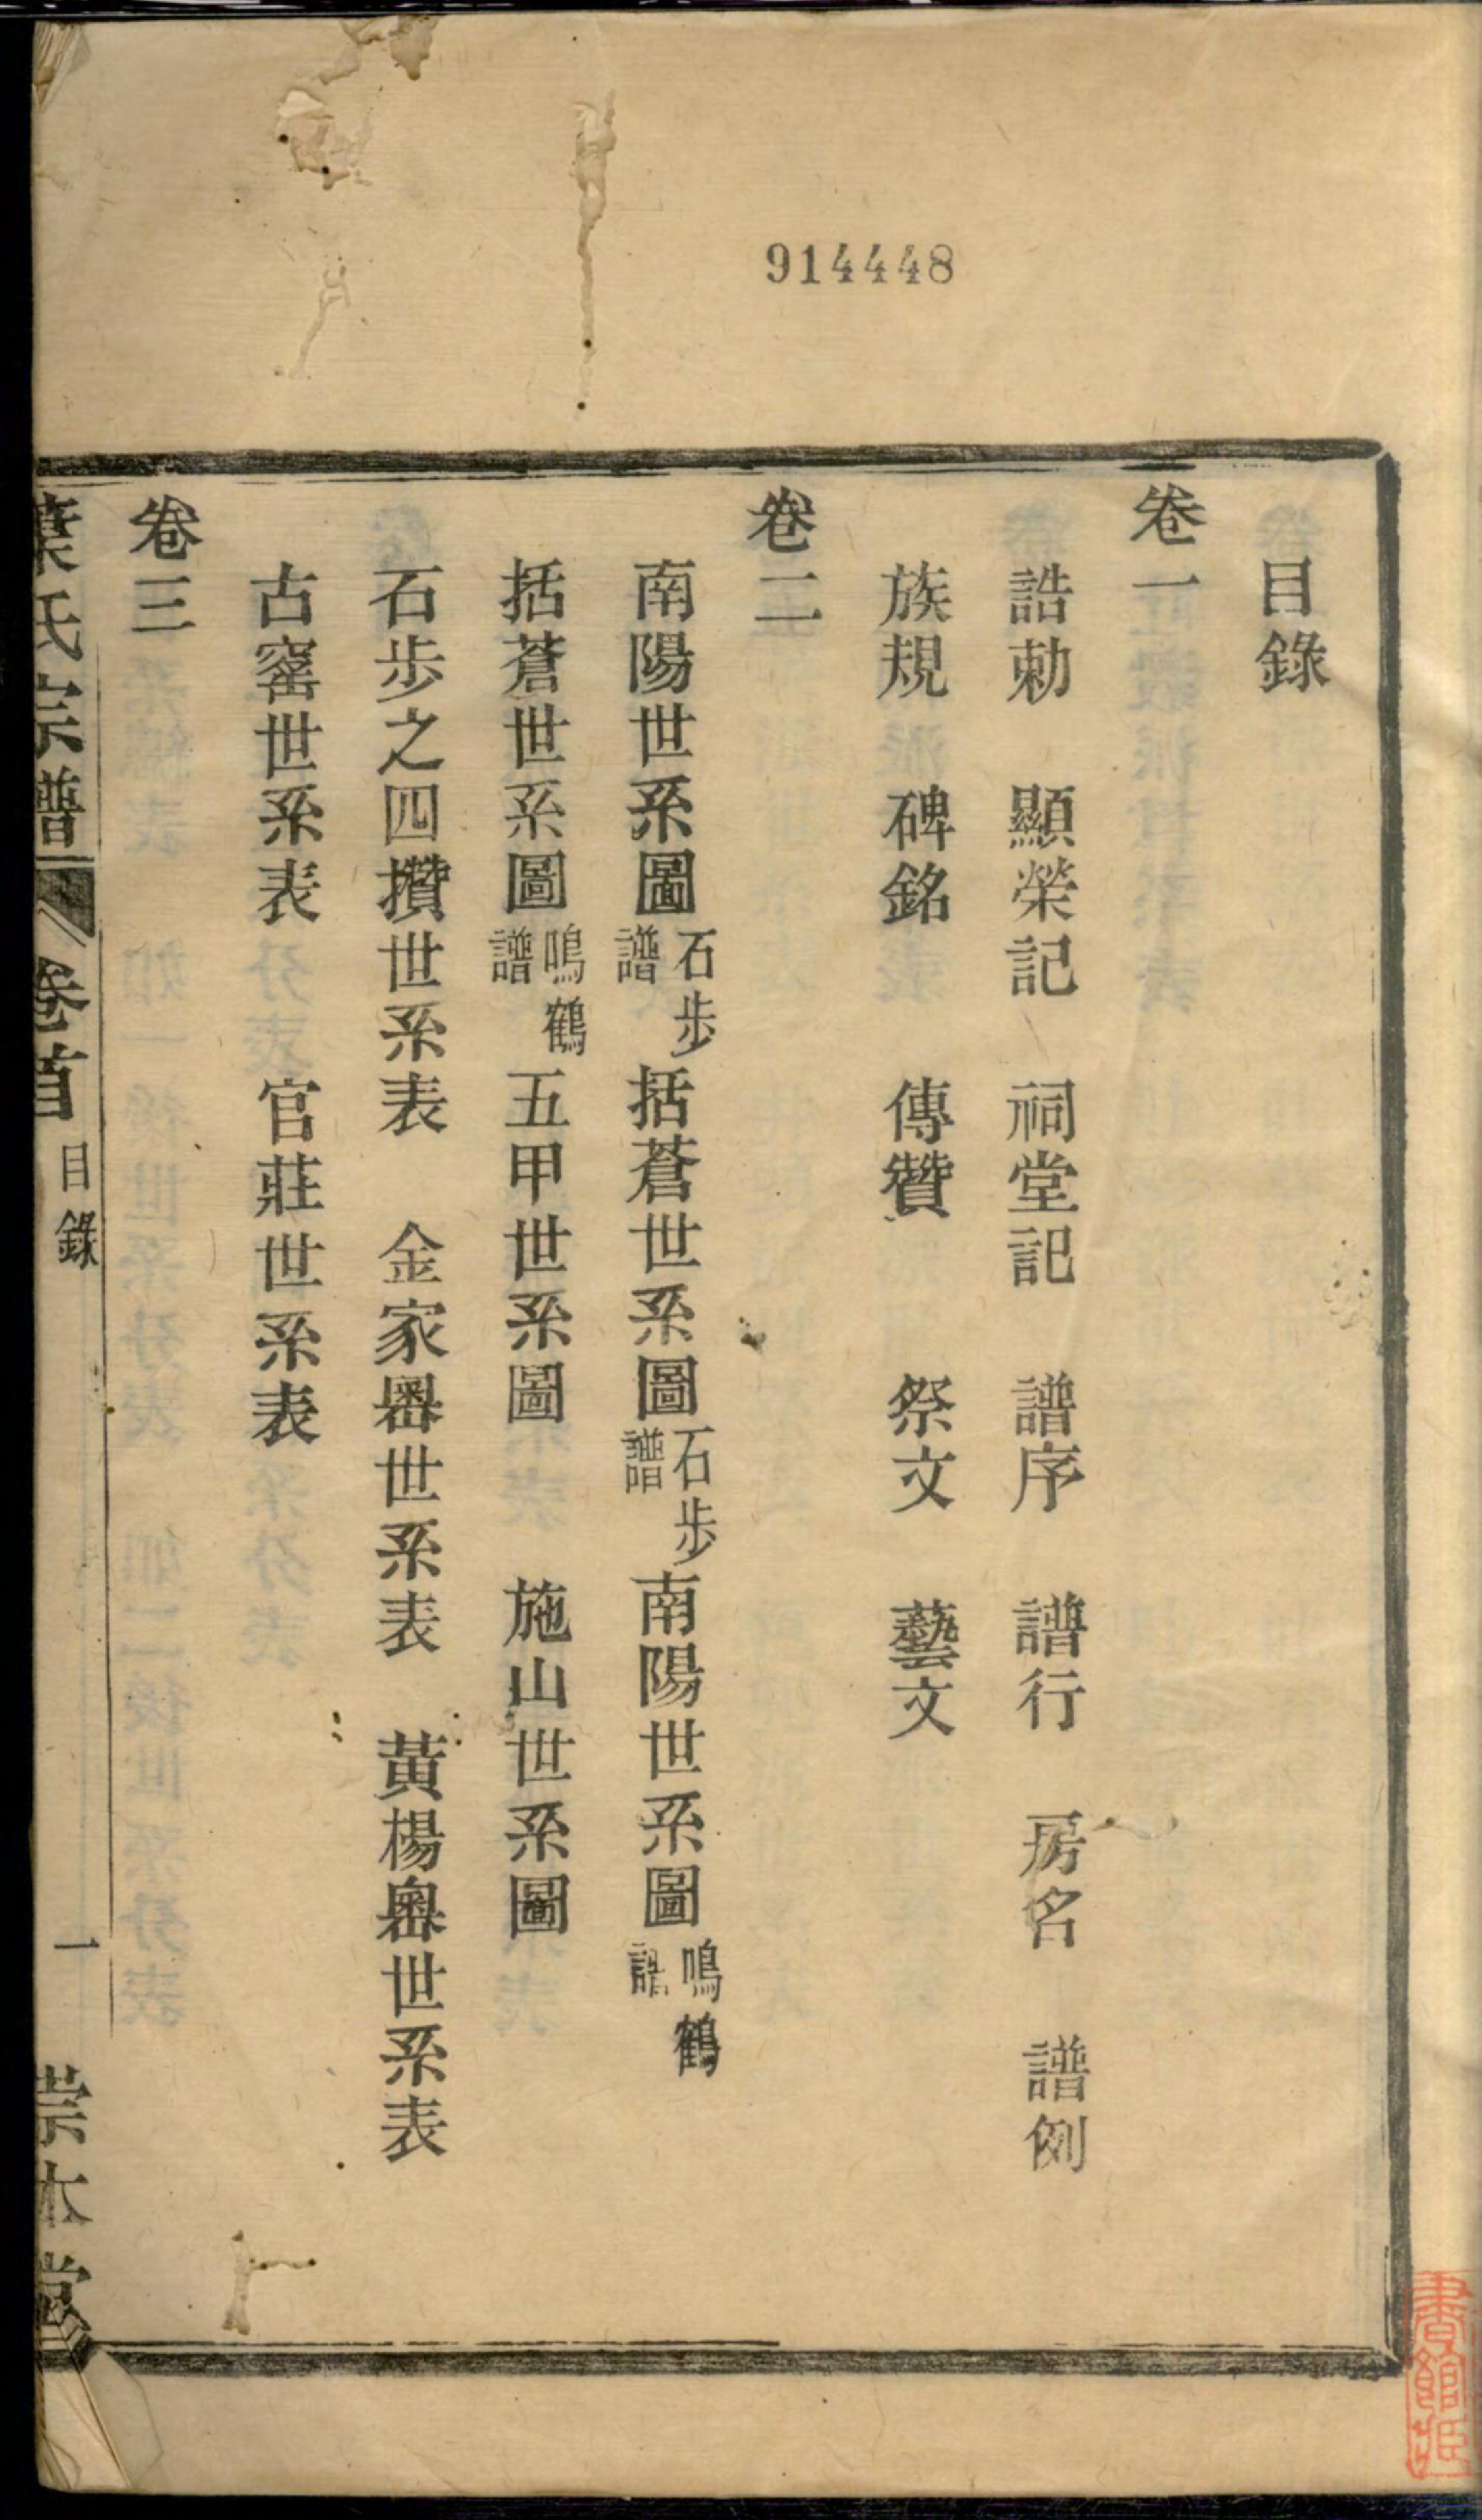 914448
目錄
卷一
誥勅 顯榮記 祠堂記 譜序 譜行 房名 譜例
族規 碑銘 傳贊 祭文 藝文
卷二
南陽世系圖 石步譜 括蒼世系圖 石步譜 南陽世系圖 鳴鶴譜
括蒼世系圖 鳴鶴譜 五甲世系圖 施山世系圖
石步之四攢世系表 金家嶴世系表 黃楊嶴世系表
古窰世系表 官莊世系表
卷三
葉氏宗譜 卷首 目錄 一 崇本堂